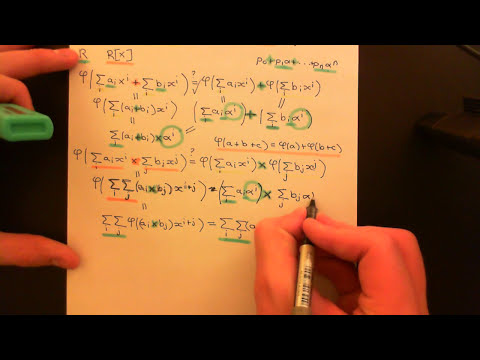 R R[x] p₀+p₁α+...pₙαⁿ
φ(∑ᵢ aᵢxⁱ + ∑ᵢ bᵢxⁱ) ≟ φ(∑ᵢ aᵢxⁱ) + φ(∑ᵢ bᵢxⁱ)
φ(∑ᵢ(aᵢ+bᵢ)xⁱ) (∑ᵢ aᵢαⁱ) + (∑ᵢ bᵢαⁱ)
∑ᵢ(aᵢ+bᵢ)×αⁱ =
φ(a+b+c)=φ(a)+φ(b+c)
φ(∑ᵢ aᵢxⁱ × ∑ⱼ bⱼxʲ) ≟ φ(∑ᵢ aᵢxⁱ) × φ(∑ⱼ bⱼxʲ)
φ(∑ᵢ∑ⱼ(aᵢ×bⱼ)xⁱ⁺ʲ) (∑ᵢ aᵢαⁱ) × ∑ⱼ bⱼα
∑ᵢ∑ⱼ φ((aᵢ×bⱼ)xⁱ⁺ʲ) = ∑ᵢ∑ⱼ(a